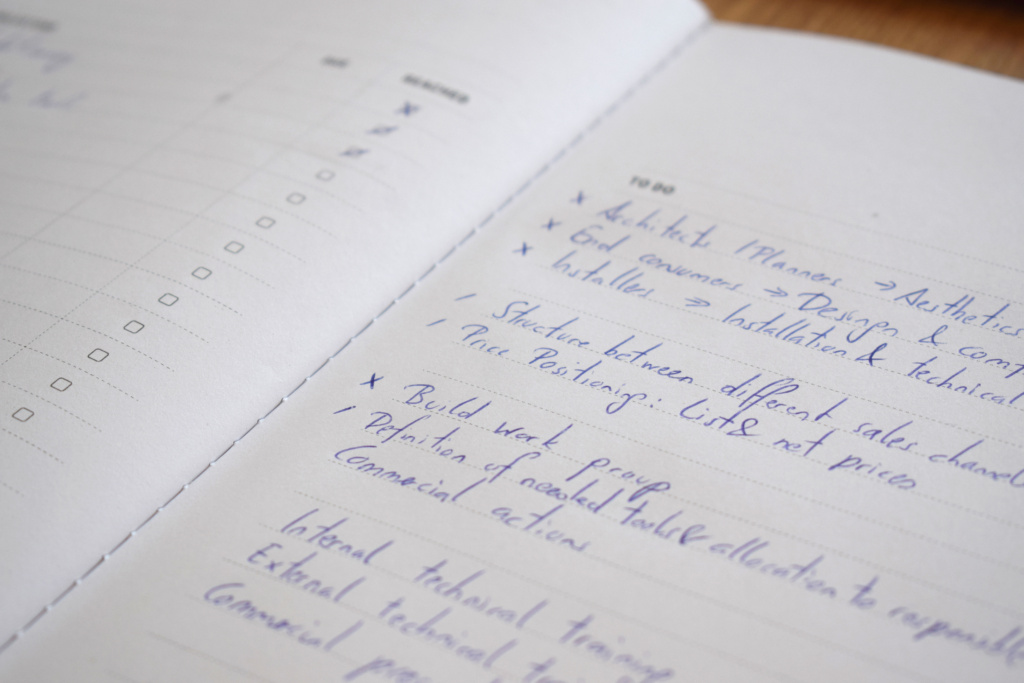 REACHED
TO DO
x Architects / Planners → Aesthetics
x End consumers → Design &
x Installers → Installation & technical
/ Structure between different sales
/ Price Positioning: List & net prices
x Build work group
/ Definition of needed tools & allocation to responsible
Commercial actions
Internal technical training
External technical
Commercial